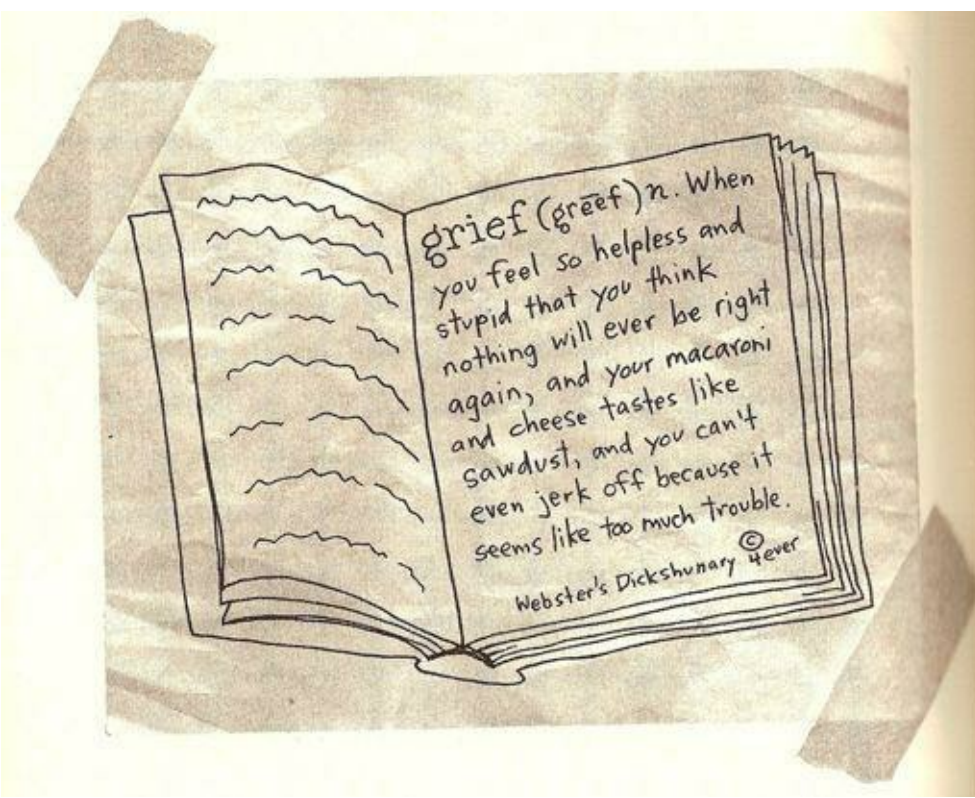 grief (grēēf) n. When
you feel so helpless and
stupid that you think
nothing will ever be right
again, and your macaroni
and cheese tastes like
sawdust, and you can't
even jerk off because it
seems like too much trouble.
Webster's Dickshunary © 4ever